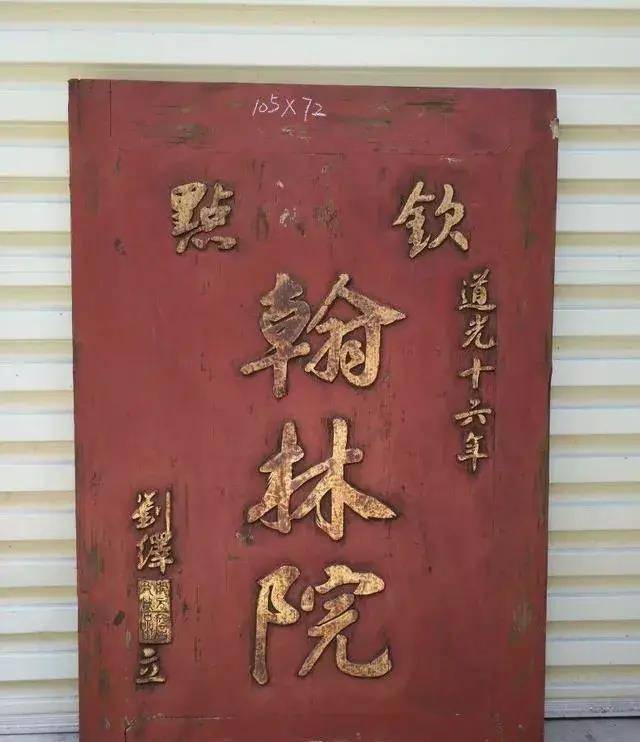 105X72
欽點
道光十六年
翰林院
劉繹
立